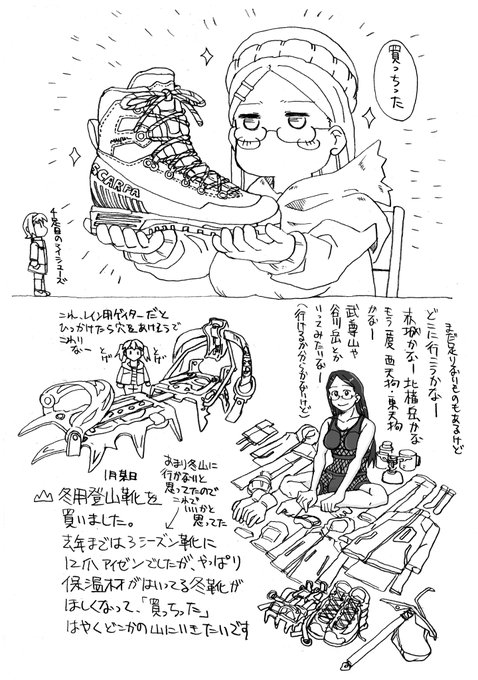 買っちった
SCARPA
4足目のマイシューズ
まだ足りないものもあるけど
どこに行こうかなー
赤城かなー 北横岳かな
もう一度 西天狗・東天狗
かなー
武尊山や
谷川岳とか
いってみたいなー
(行けるか分からないけど)
これ、レイン用ゲイターだと
ひっかけたら穴をあけそうで
こわい
なー
トゲ
トゲ
1月某日
冬用登山靴を
買いました。
あまり冬山に
行かないと
思ってたので
これで
いいかと
思ってた
去年までは3シーズン靴に
12本アイゼンでしたが、やっぱり
保温材がはいってる冬靴が
ほしくなって、「買っちった」
はやくどこかの山にいきたいです